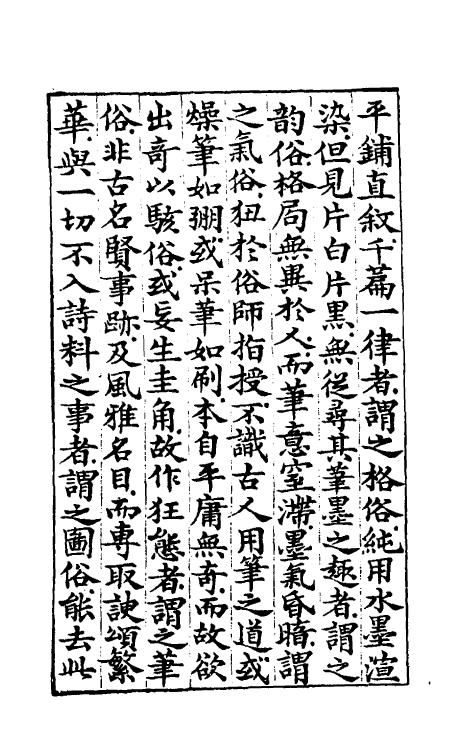 平鋪直叙千篇一律者謂之格俗純用水墨渲
染但見片白片黑無從尋其筆墨之趣者謂之
韵俗格局無異於人而筆意窒滯墨氣昏暗謂
之氣俗狃於俗師指授不識古人用筆之道或
燥筆如弸或呆筆如刷本自平庸無奇而故欲
出奇以駭俗或妄生圭角故作狂態者謂之筆
俗非古名賢事跡及風雅名目而專取諛頌繁
華與一切不入詩料之事者謂之圖俗能去此